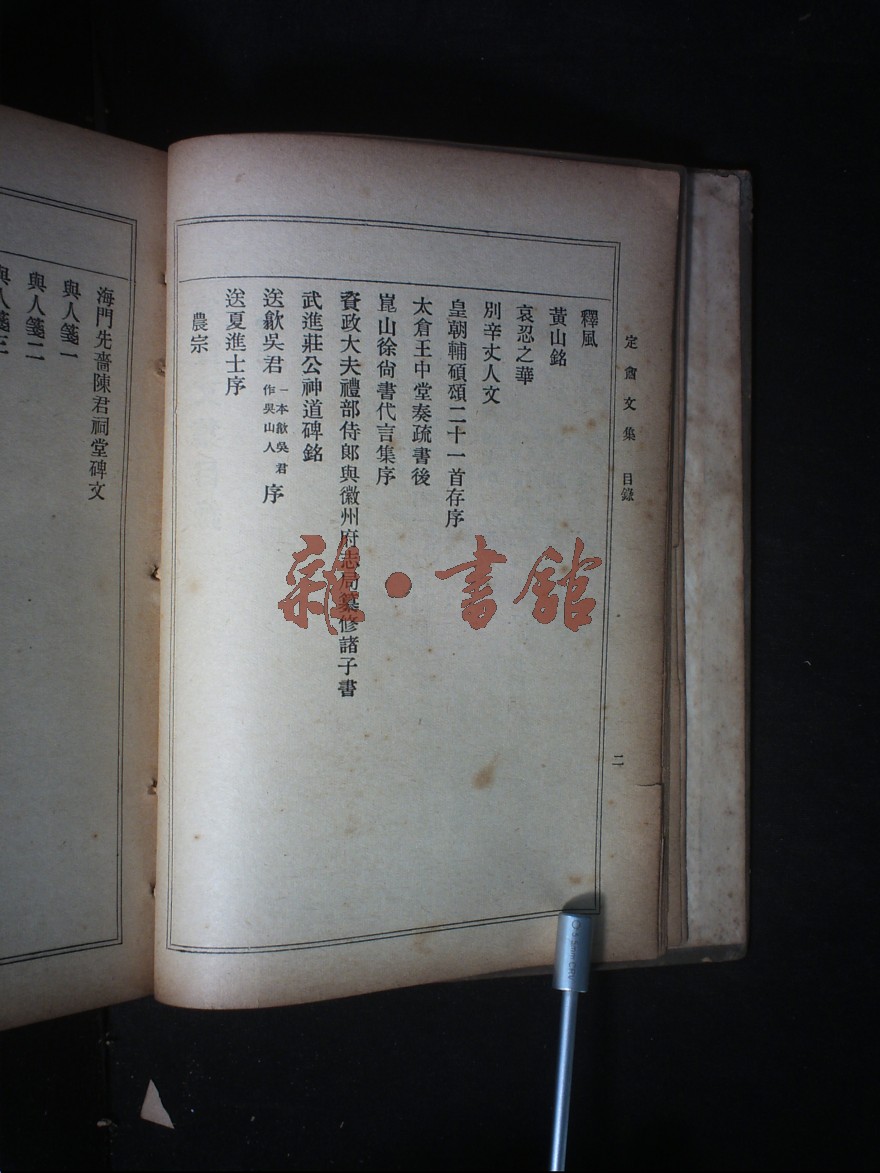 定盦文集 目錄
二
釋風
黃山銘
哀忍之華
別辛丈人文
皇朝輔碩頌二十一首存序
太倉王中堂奏疏書後
崑山徐尙書代言集序
資政大夫禮部侍郞
與徽州府志局纂修諸子書
武進莊公神道碑銘
送歙吳君一本歙吳君作吳山人序
送夏進士序
農宗
海門先嗇陳君祠堂碑文
與人箋一
與人箋二
與人箋三
雜·書館